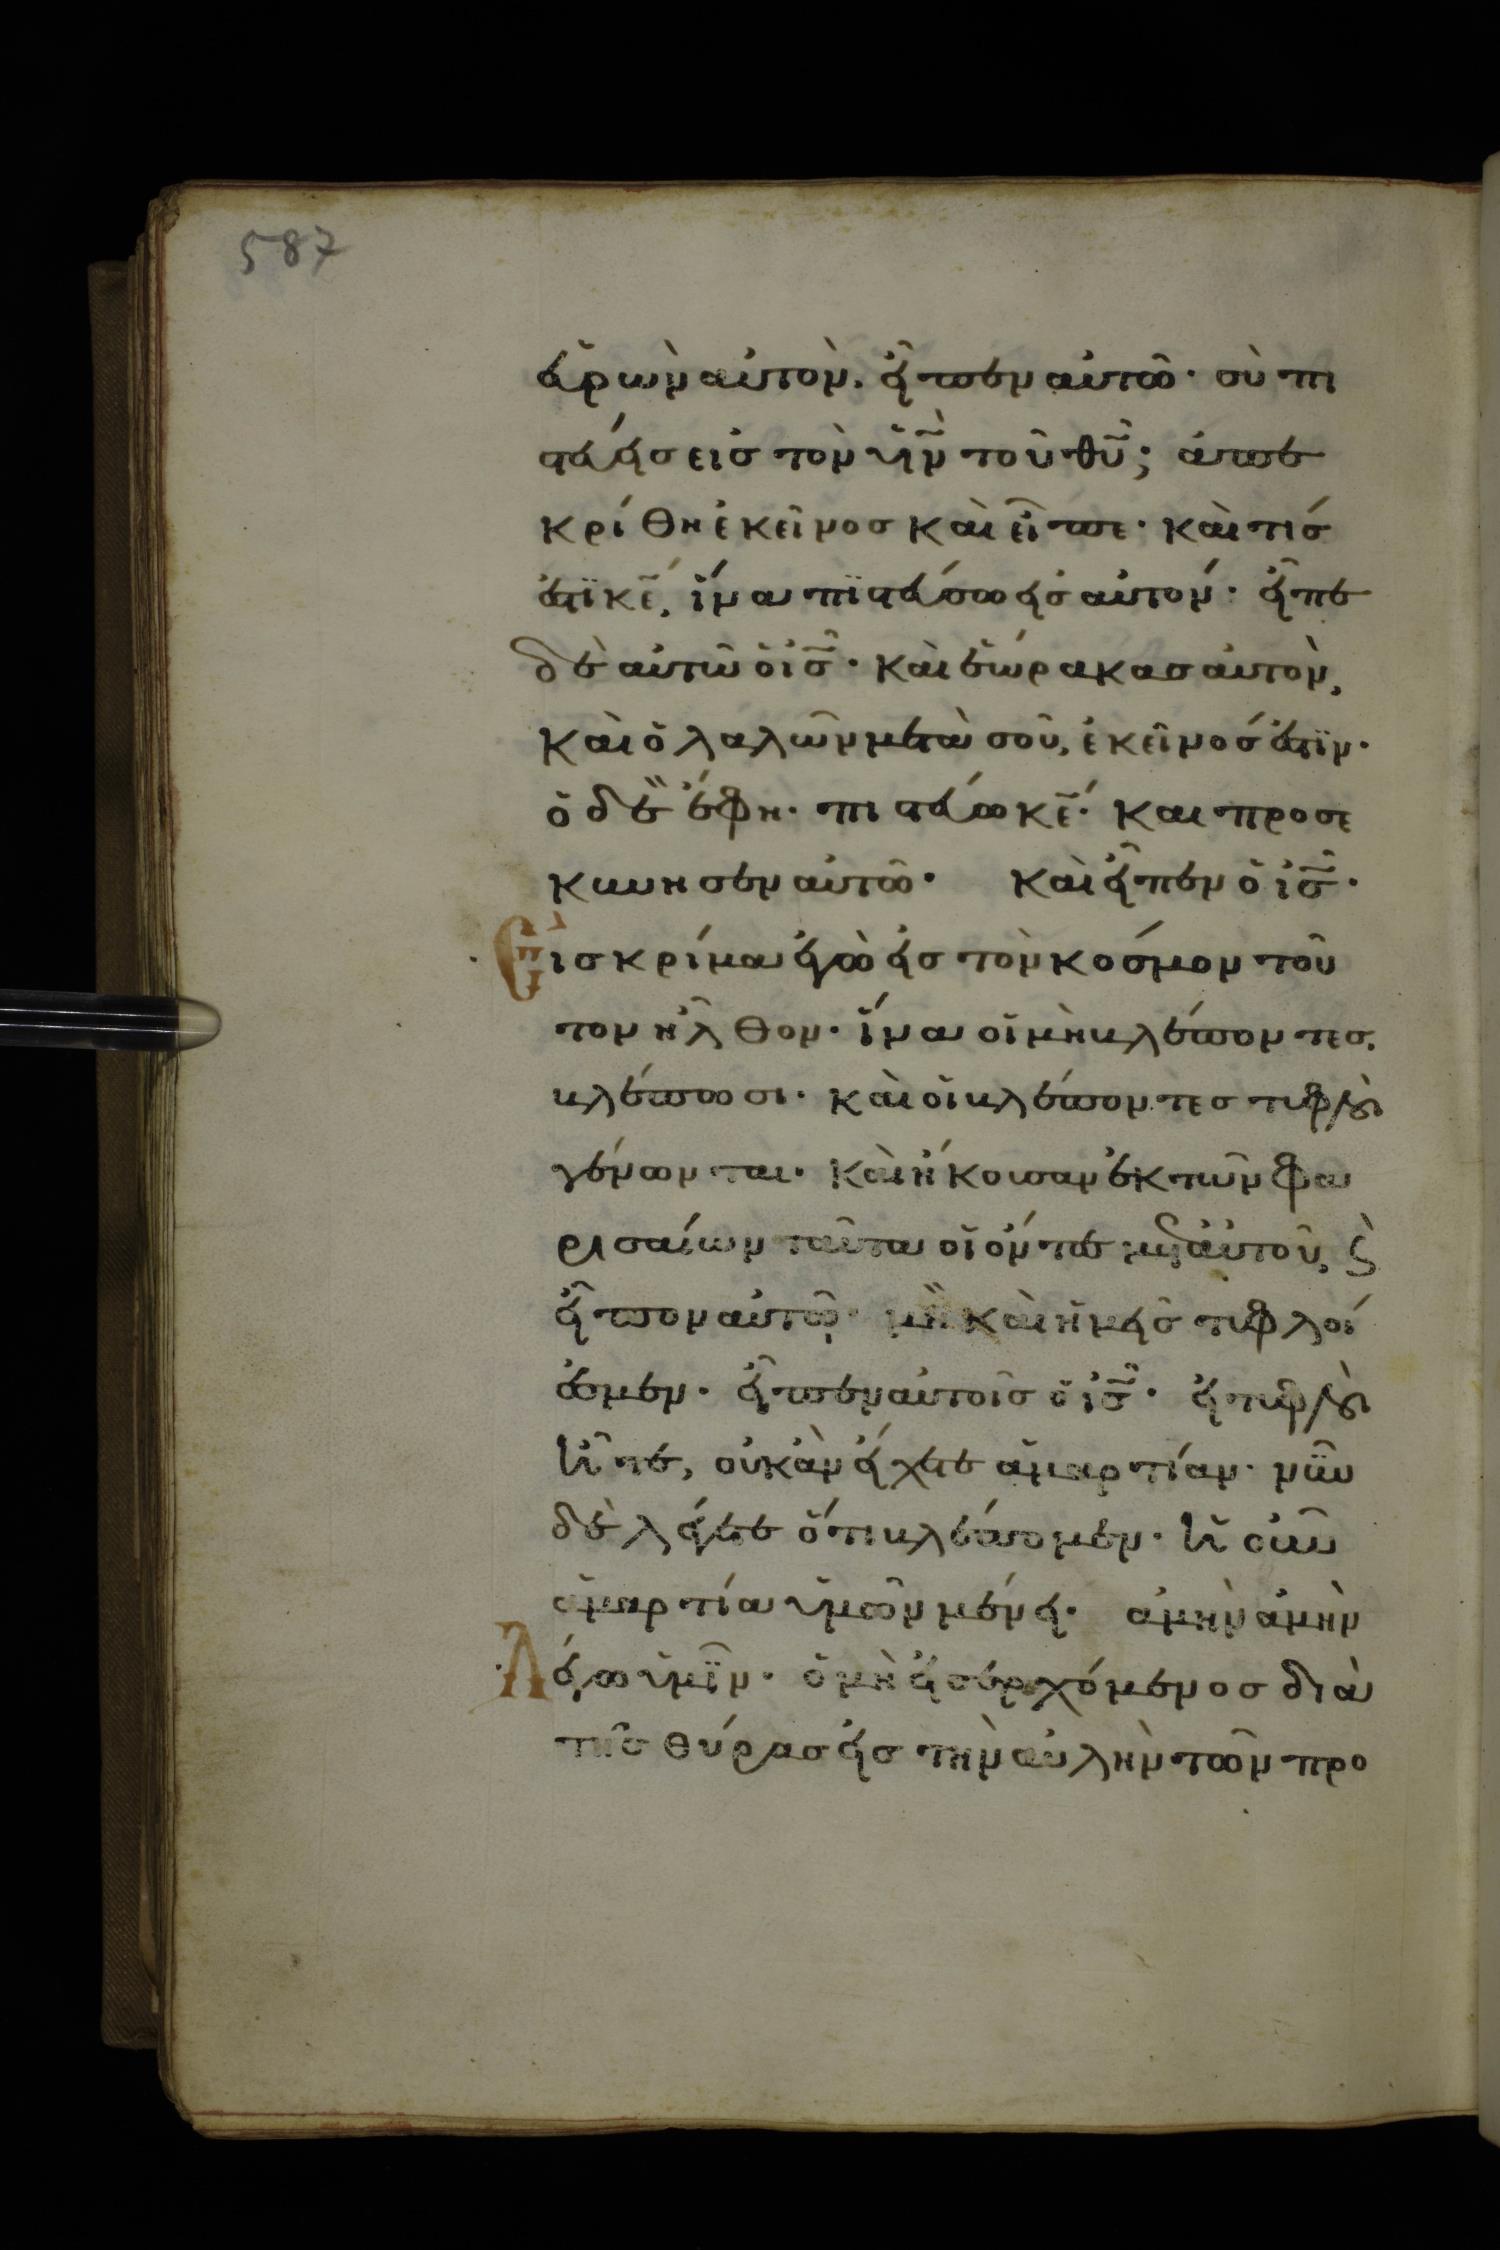 587
εὑρὼν αὐτὸν. εἶπεν αὐτῶ· σὺ πι
στεύεις τὸν υἱὸν τοῦ θῦ; ἀπε
κρίθη ἐκεῖνος καὶ εἶπε· καὶ τίς
ἐστὶ κε, ἵνα πιστεύσω εἰς αὐτόν· εἶπε
δὲ αὐτῶ ὁ ις· καὶ ἑώρακας αὐτὸν,
καὶ ὁ λαλῶν μετὰ σοῦ, ἐκεῖνός ἐστιν·
ὁ δὲ ἔφη· πιστεύω κε· και προσε
κύνησεν αὐτῶ· καὶ εἶπεν ὁ ις·
Εἰς κρίμα ἐγὼ εἰς τὸν κόσμον τοῦ
τον ἦλθον· ἵνα οἱ μὴ βλέποντες,
βλέπωσι· καὶ οἱ βλέποντες τυφλοὶ
γένωνται· καὶ ἤκουσαν ἐκ τῶν φα
ρισαίων ταῦτα οἱ ὄντες μετ αὐτοῦ, ϗ
εἶπον αὐτῶ· μὴ καὶ ἡμεῖς τυφλοί
ἐσμεν· εἶπεν αὐτοῖς ὁ ις· εἰ τυφλοὶ
ἦτε, οὐκ ἂν εἴχετε ἁμαρτίαν· νῦν
δὲ λέγετε ὅτι βλέπομεν· ἡ οὖν
ἁμαρτία ὑμῶν μένει· ἀμὴν ἀμὴν
Λέγω ὑμῖν· ὁ μὴ εἰσερχόμενος διὰ
τῆς θύρας εἰς τὴν αὐλὴν τῶν προ